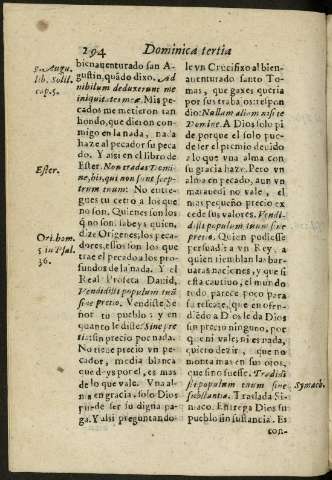 294 Dominica tertia
p. Augu.
lib. Solil.
cap. 5.
bienauenturado san A-
gustin, quãdo dixo. Ad
nihilum deduxerunt me
iniquitates meæ. Mis pe-
cados me metieron tan
hondo, que dieron con-
migo en la nada, nada
haze al pecador su peca-
do. Y assi en el libro de
Ester.
Ester. Non tradas Domi-
ne, his, qui non sunt scep-
trum tuum. No entrie-
gues tu cetro a los que
no son. Quienes son los
q̃ no son sabeys quien,
Ori. hom.
5 in Psal.
36.
dize Origenes, los peca-
dores, essos son los que
trae el pecado a los pro-
fundos de la nada. Y el
Real Profeta Dauid,
Vendidisti populum tuũ
sine pretio. Vendiste Se-
ñor tu pueblo: y en
quanto le diste? Sine pre-
tio: sin precio por nada.
No tiene precio vn pe-
cador, media blanca
que deys por el, es mas
de lo que vale. Vna al-
ma en gracia, solo Dios
puede ser su digna pa-
ga. Y assi preguntando-
le vn Crucifixo al bien-
auenturado santo To-
mas, que gajes queria
por sus trabajos: respon-
dio: Nullam aliam nisi te
Domine. A Dios solo pi-
de porque el solo pue-
de ser el premio deuido
a lo que vna alma con
su gracia haze. Pero vn
alma en pecado, aun vn
marauedi no vale, el
mas pequeño precio ex-
cede sus valores. Vendi-
disti populum tuũ sine
pretio. Quien pudiesse
persuadir a vn Rey, a
quien tiemblan las bar-
uaras naciones, y que si
esta cautiuo, el mundo
todo parece poco para
su rescate, que en ofen-
diẽdo a Dios le da Dios
sin precio ninguno, por
que ni vale, ni es nada,
quiero dezir, que no
monta mas en sus ojos,
que sino fuesse. Tradidi
sti populum tuum sine
Symach.
substantia. Traslada Si-
maco. Entrega Dios su
pueblo sin sustancia. Es
con-